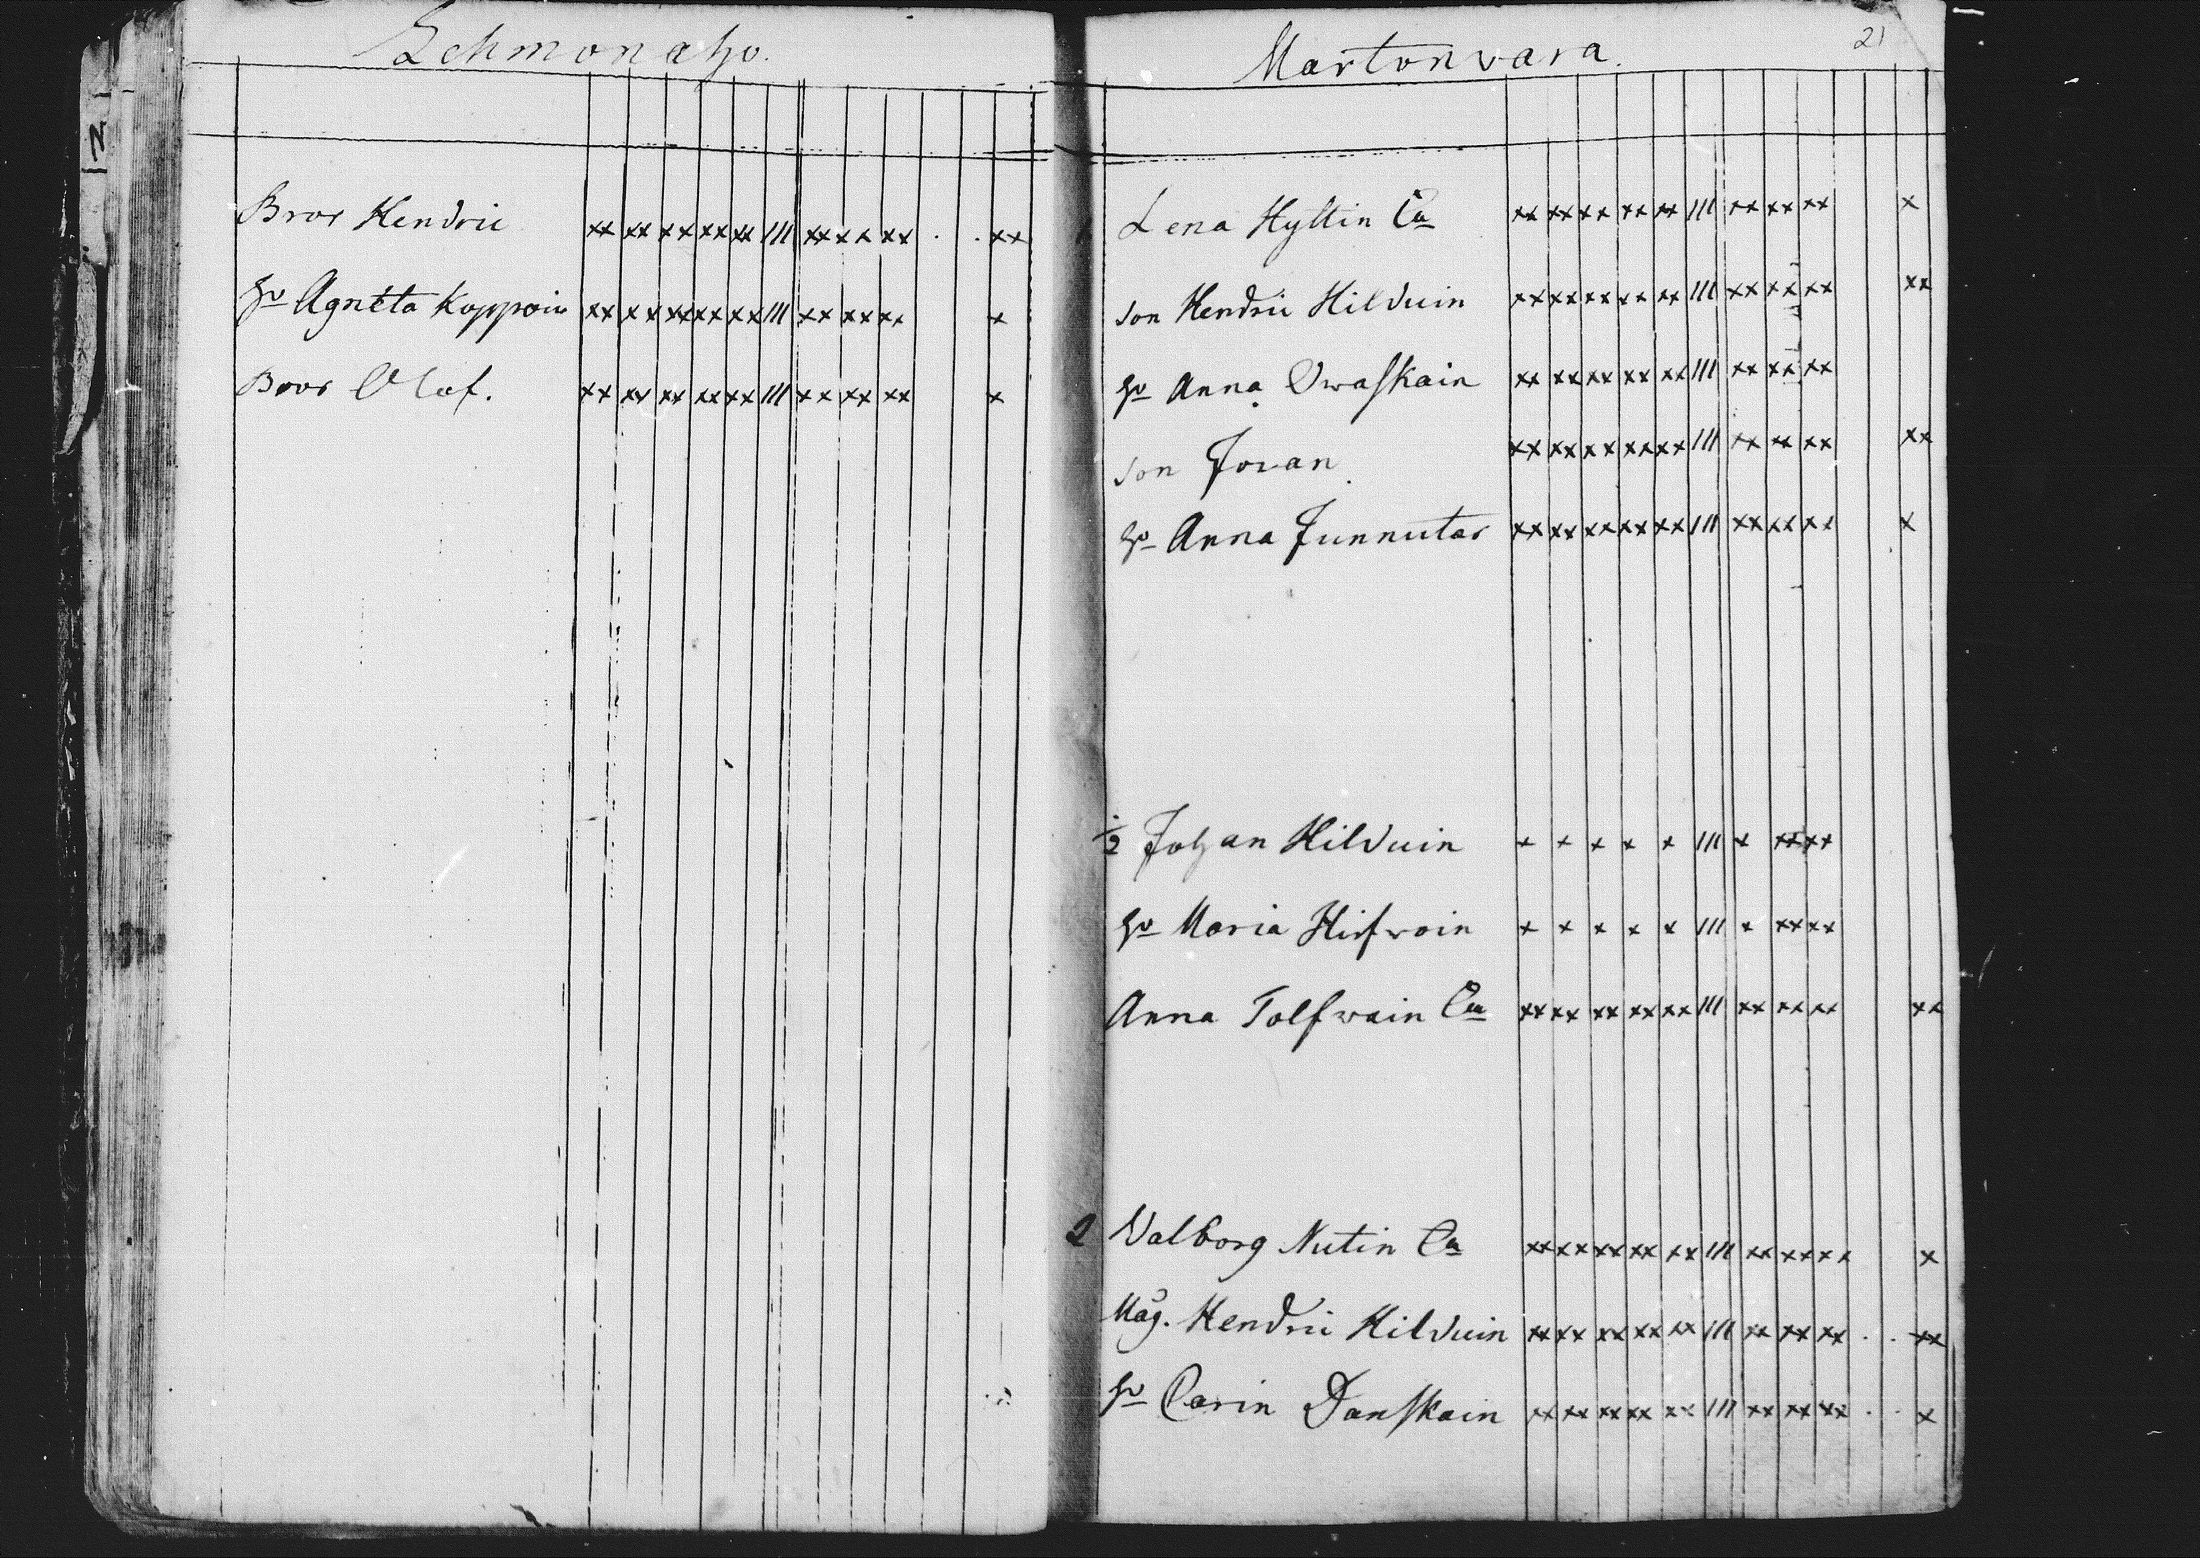 Lehmonaho.
Bror Hendric xx xx xx xx xx III xx xx xx . . xx
hu Agneta Koppoin xx xx xx xx xx III xx xx xx x
Bror Olof. xx xx xx xx xx III xx xx xx x
Martonvara. 21
Lena Hyttin Ea xx xx xx xx xx III xx xx xx x
son Hendric Hilduin xx xx xx xx xx III xx xx xx xx
hu Anna Ovaskain xx xx xx xx xx III xx xx xx
son Joran xx xx xx xx xx III xx xx xx xx
hu Anna Junnutar xx xx xx xx xx III xx xx xx x
1/2 Johan Hilduin x x x x x III x xx xx
hu Maria Hirfwoin x x x x x III x xx xx
Anna Tolfwain Ea xx xx xx xx xx III xx xx xx xx
2 Valborg Nutin Ea xx xx xx xx xx III xx xx xx x
Måg. Hendric Hilduin xx xx xx xx xx III xx xx xx . . xx
hu Carin Danskain xx xx xx xx xx III xx xx xx . . x